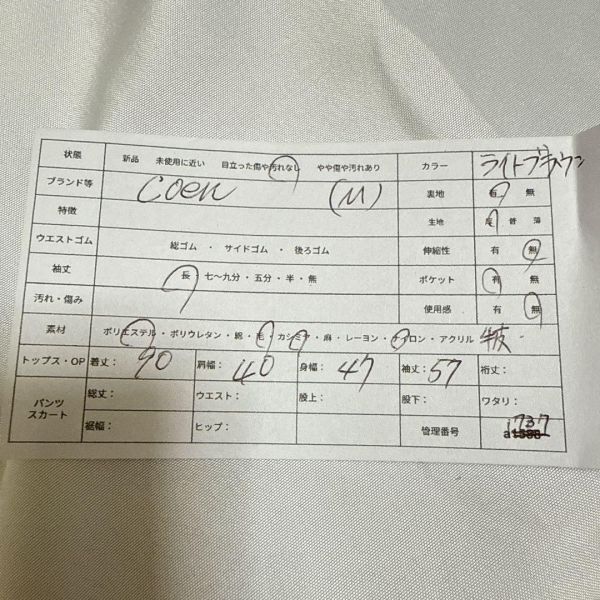 状態 新品 未使用に近い 目立った傷や汚れなし やや傷や汚れあり カラー ライトブラウン
ブランド等 coen (M) 裏地 有 無
特徴 生地 厚 普 薄
ウエストゴム 総ゴム ・ サイドゴム ・ 後ろゴム 伸縮性 有 無
袖丈 長 七〜九分 ・ 五分 ・ 半 ・ 無 ポケット 有 無
汚れ・傷み 使用感 有 無
素材 ポリエステル ・ ポリウレタン ・ 綿 ・ 毛 ・ カシミヤ ・ 麻 ・ レーヨン ・ ナイロン ・ アクリル 牛皮
トップス・OP 着丈: 90 肩幅: 40 身幅: 47 袖丈: 57 裄丈:
パンツ スカート 総丈: ウエスト: 股上: 股下: ワタリ:
裾幅: ヒップ: 管理番号 a 1737